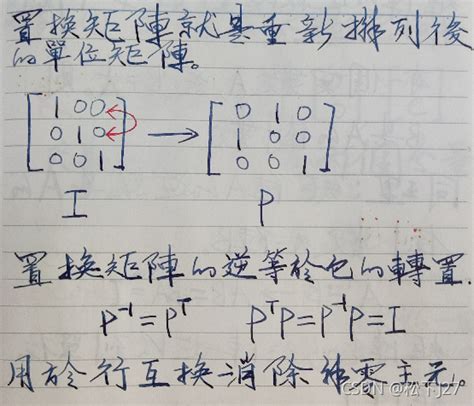 置換矩陣就是重新排列後
的單位矩陣。
1 0 0 0 1 0
0 1 0 → 1 0 0
0 0 1 0 0 1
I P
置換矩陣的逆等於它的轉置.
P⁻¹=Pᵀ PᵀP=P⁻¹P=I
用於行互換消除 零主元。
CSDN @松下J27